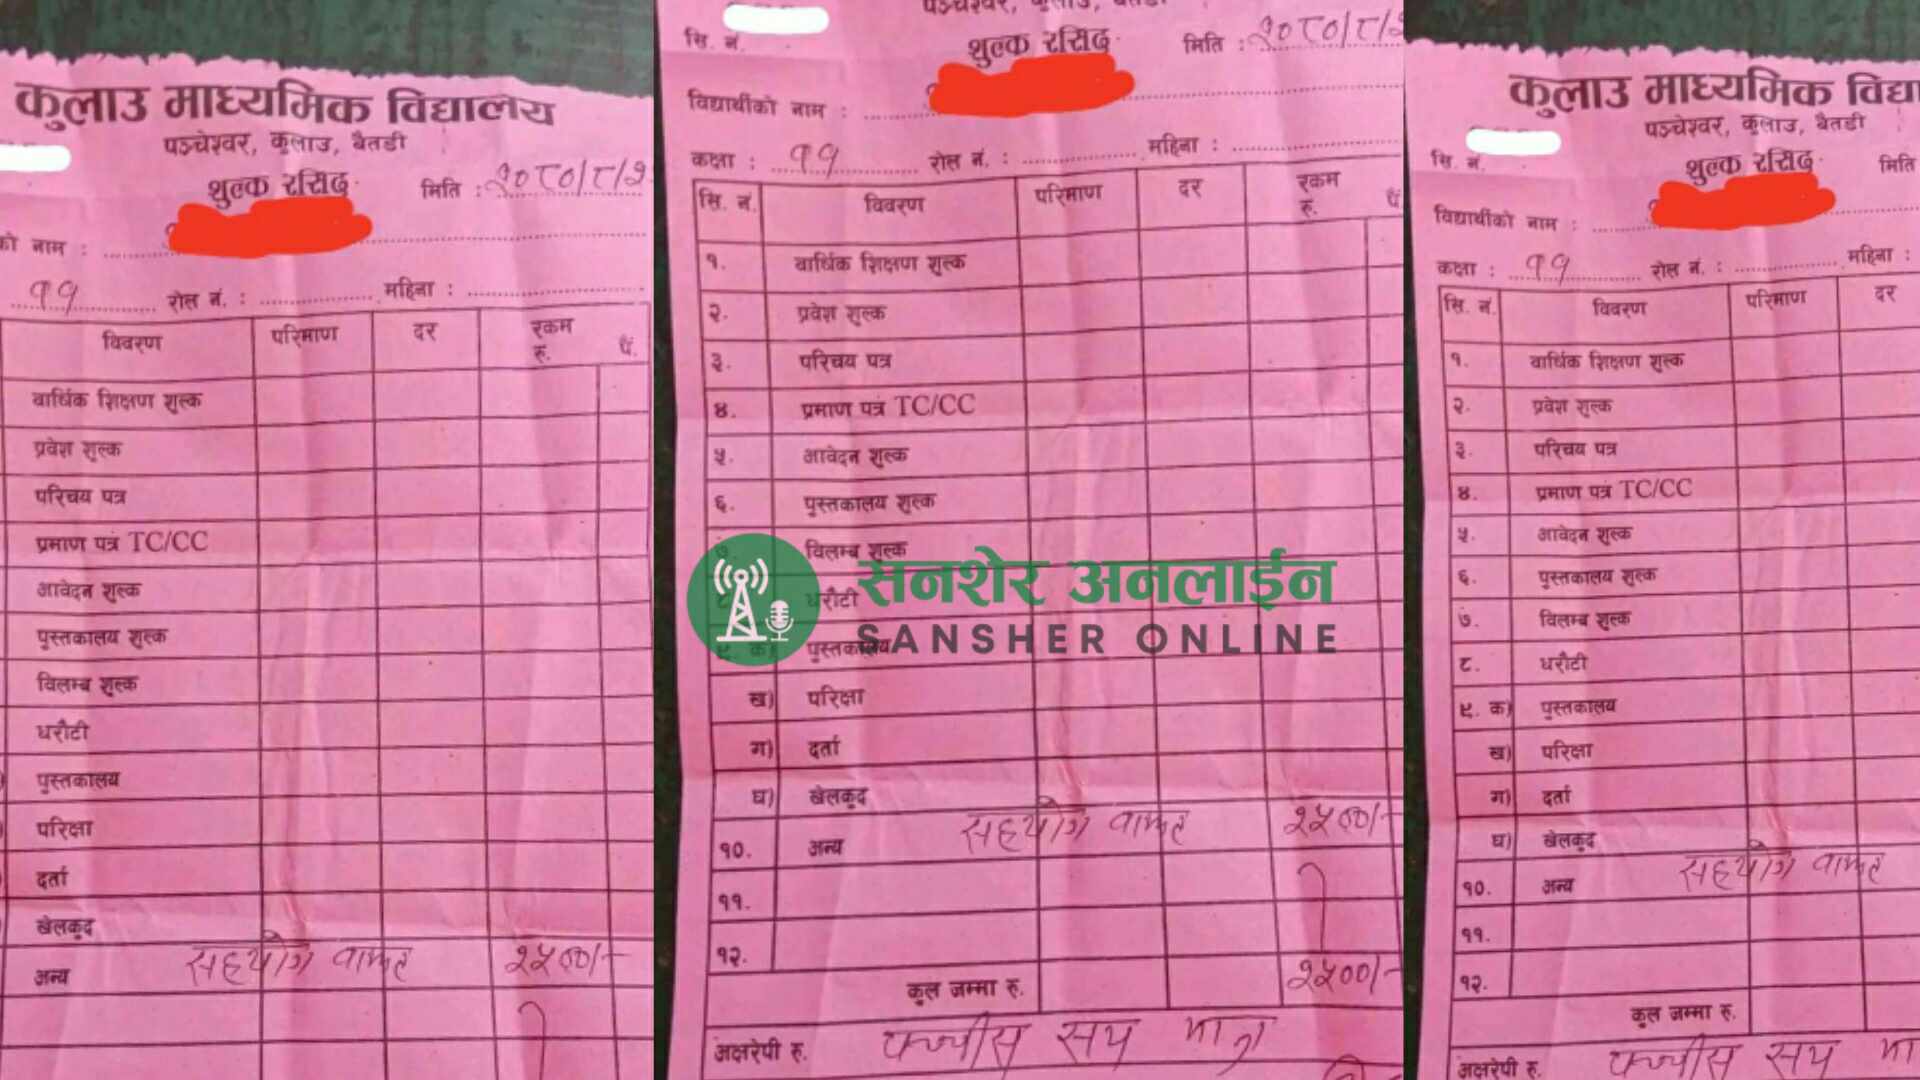 कुलाउ माध्यमिक विद्यालय
पञ्चेश्वर, कुलाउ, बैतडी
शुल्क रसिद
मिति : २०८०/८/२
को नाम :
११ रोल नं. : महिना :
विवरण परिमाण दर रकम
रु. पै.
वार्षिक शिक्षण शुल्क
प्रवेश शुल्क
परिचय पत्र
प्रमाण पत्र TC/CC
आवेदन शुल्क
पुस्तकालय शुल्क
विलम्ब शुल्क
धरौटी
पुस्तकालय
परिक्षा
दर्ता
खेलकुद
अन्य सहयोग वापत २५००/-
पञ्चेश्वर, कुलाउ, बैतडी
सि. नं.
शुल्क रसिद
मिति : २०८०/८/२
विद्यार्थीको नाम :
कक्षा : ११ रोल नं. : महिना :
सि. नं. विवरण परिमाण दर रकम
रु. पै.
१. वार्षिक शिक्षण शुल्क
२. प्रवेश शुल्क
३. परिचय पत्र
४. प्रमाण पत्र TC/CC
५. आवेदन शुल्क
६. पुस्तकालय शुल्क
७. विलम्ब शुल्क
८. धरौटी
९. क) पुस्तकालय
ख) परिक्षा
ग) दर्ता
घ) खेलकुद
१०. अन्य सहयोग वापत २५००/-
११.
१२.
कुल जम्मा रु. २५००/-
अक्षरेपी रु. पच्चीस सय मात्र
सनशेर अनलाईन
SANSHER ONLINE
कुलाउ माध्यमिक विद्या
पञ्चेश्वर, कुलाउ, बैतडी
सि. नं.
शुल्क रसिद
मिति
विद्यार्थीको नाम :
कक्षा : ११ रोल नं. : महिना :
सि. नं. विवरण परिमाण दर
१. वार्षिक शिक्षण शुल्क
२. प्रवेश शुल्क
३. परिचय पत्र
४. प्रमाण पत्र TC/CC
५. आवेदन शुल्क
६. पुस्तकालय शुल्क
७. विलम्ब शुल्क
८. धरौटी
९. क) पुस्तकालय
ख) परिक्षा
ग) दर्ता
घ) खेलकुद
१०. अन्य सहयोग वापत
११.
१२.
कुल जम्मा रु.
अक्षरेपी रु. पच्चीस सय मा